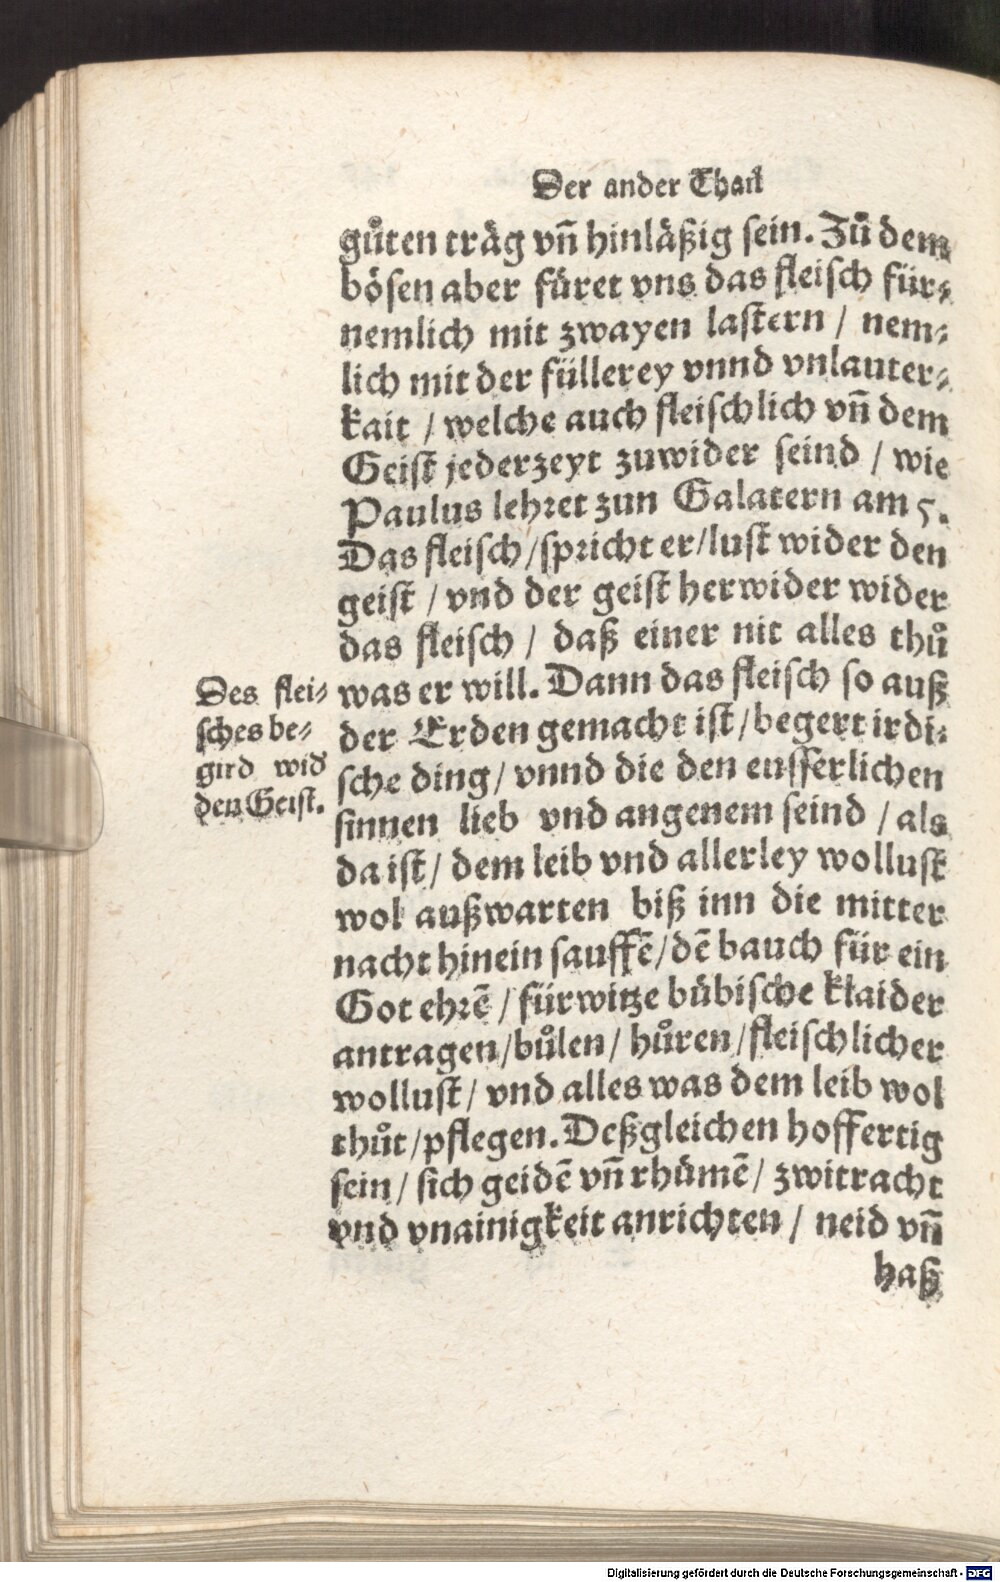 Der ander Thail
gůten träg vñ hinläßig sein. Zů dem
bösen aber füret vns das fleisch für⸗
nemlich mit zwayen lastern / nem⸗
lich mit der füllerey vnnd vnlauter⸗
kait / welche auch fleischlich vñ dem
Geist jederzeyt zuwider seind / wie
Paulus lehret zun Galatern am 5.
Das fleisch / spricht er / lust wider den
geist / vnd der geist herwider wider
das fleisch / daß einer nit alles thů
was er will. Dann das fleisch so auß
der Erden gemacht ist / begert irdi⸗
sche ding / vnnd die den eusserlichen
sinnen lieb vnd angenem seind / als
da ist / dem leib vnd allerley wollust
wol außwarten biß inn die mitter
nacht hinein sauffē / dē bauch für ein
Got ehrē / fürwitze bübische klaider
antragen / bůlen / hůren / fleischlicher
wollust / vnd alles was dem leib wol
thůt / pflegen. Deßgleichen hoffertig
sein / sich geidē vñ rhümē / zwitracht
vnd vnainigkeit anrichten / neid vñ
haß
Des flei⸗
sches be⸗
gird wid
den Geist.
Digitalisierung gefördert durch die Deutsche Forschungsgemeinschaft - DFG